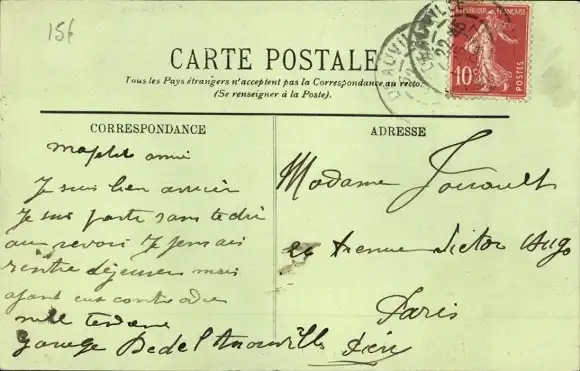 156
CARTE POSTALE
Tous les Pays étrangers n'acceptent pas la Correspondance au recto.
(Se renseigner à la Poste).
RÉPUBLIQUE FRANÇAISE
10
POSTES
CORRESPONDANCE
ma petite amie
Je suis bien arrivée
Je suis partie sans te dire
au revoir Je pensais
rentre déjeuner mais
ayant
mille
Garage
ADRESSE
Madame
24 Avenue Victor Hugo
Paris